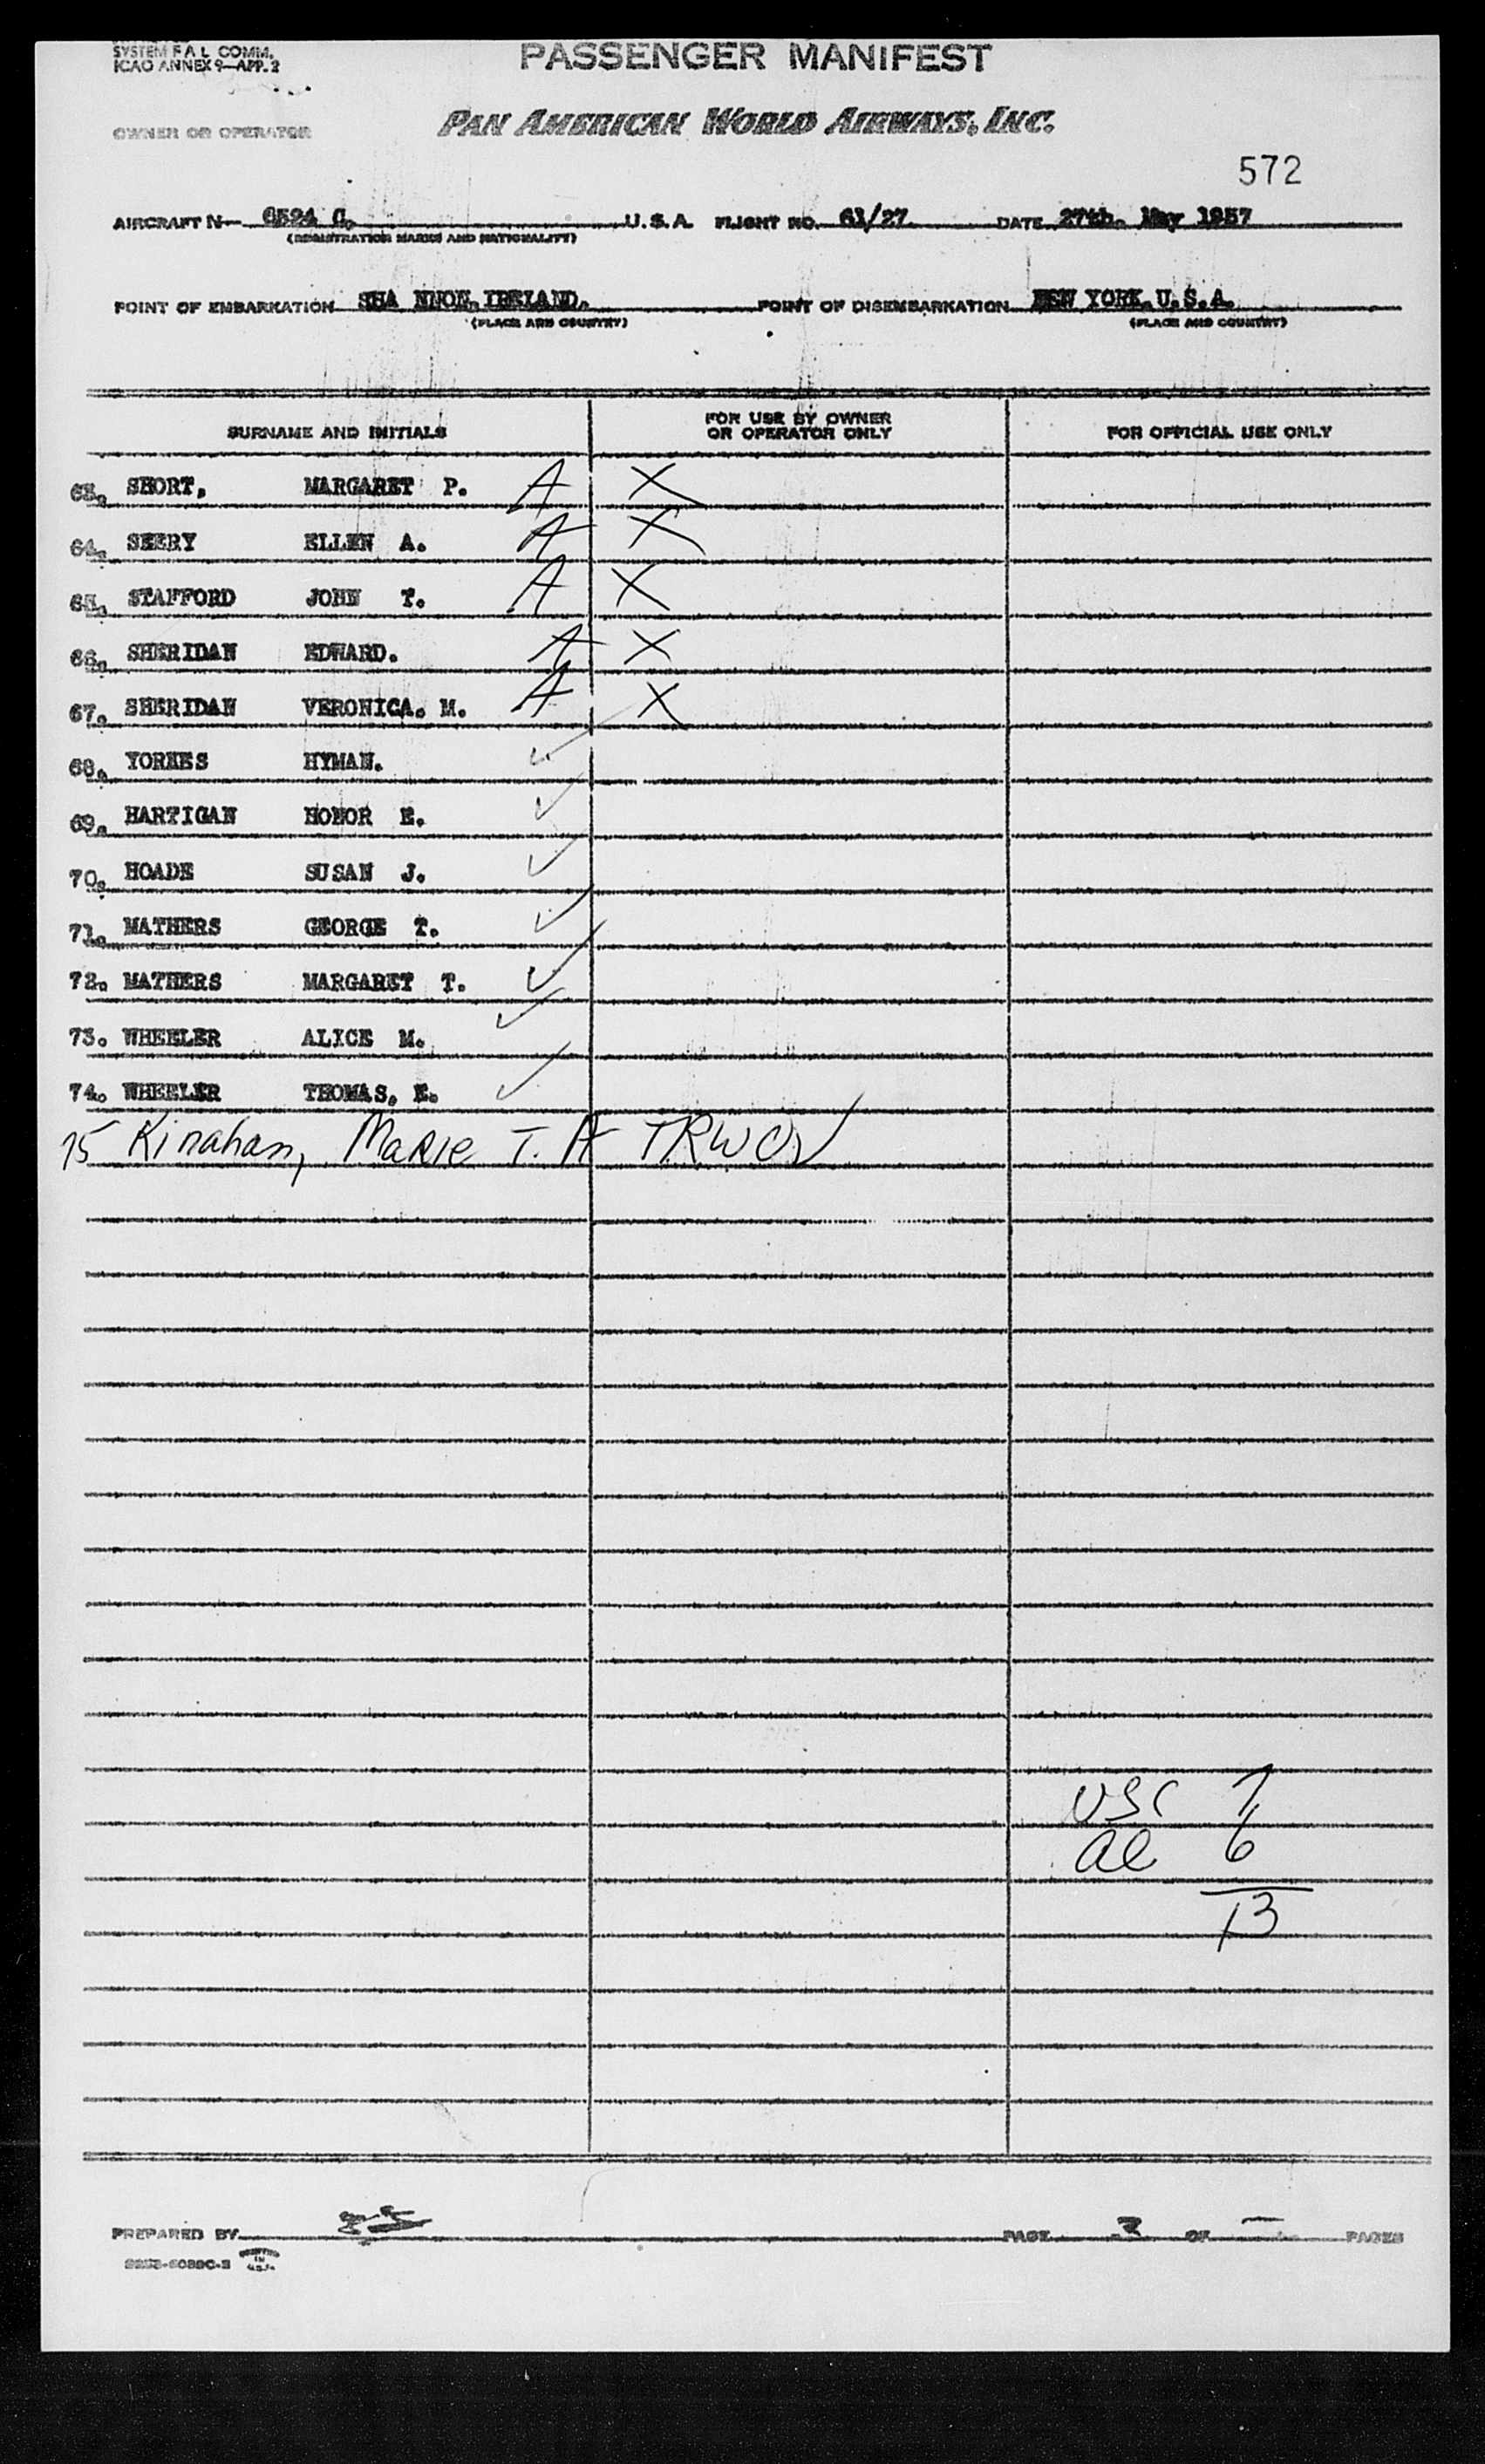 SYSTEM F A L COMM.
ICAO ANNEX 9—APP. 2
PASSENGER MANIFEST
OWNER OR OPERATOR
PAN AMERICAN WORLD AIRWAYS, INC.
572
AIRCRAFT N— 6524 C. U.S.A. FLIGHT NO. 61/27 DATE 27th. May 1957
(REGISTRATION MARKS AND NATIONALITY)
POINT OF EMBARKATION SHA NNON. IRELAND. POINT OF DISEMBARKATION NEW YORK. U.S.A.
(PLACE AND COUNTRY) (PLACE AND COUNTRY)
SURNAME AND INITIALS FOR USE BY OWNER OR OPERATOR ONLY FOR OFFICIAL USE ONLY
63. SHORT, MARGARET P. A X
64. SEERY ELLEN A. A X
65. STAFFORD JOHN T. A X
66. SHERIDAN EDWARD. A X
67. SHERIDAN VERONICA. M. A X
68. YORKES HYMAN. ✓
69. HARTIGAN HONOR E. ✓
70. HOADE SUSAN J. ✓
71. MATHERS GEORGE T. ✓
72. MATHERS MARGARET T. ✓
73. WHEELER ALICE M. ✓
74. WHEELER THOMAS. E. ✓
75 Kinahan, Marie T. A TRWOV
USC 7
al 6
13
PREPARED BY PAGE 3 OF — PAGES